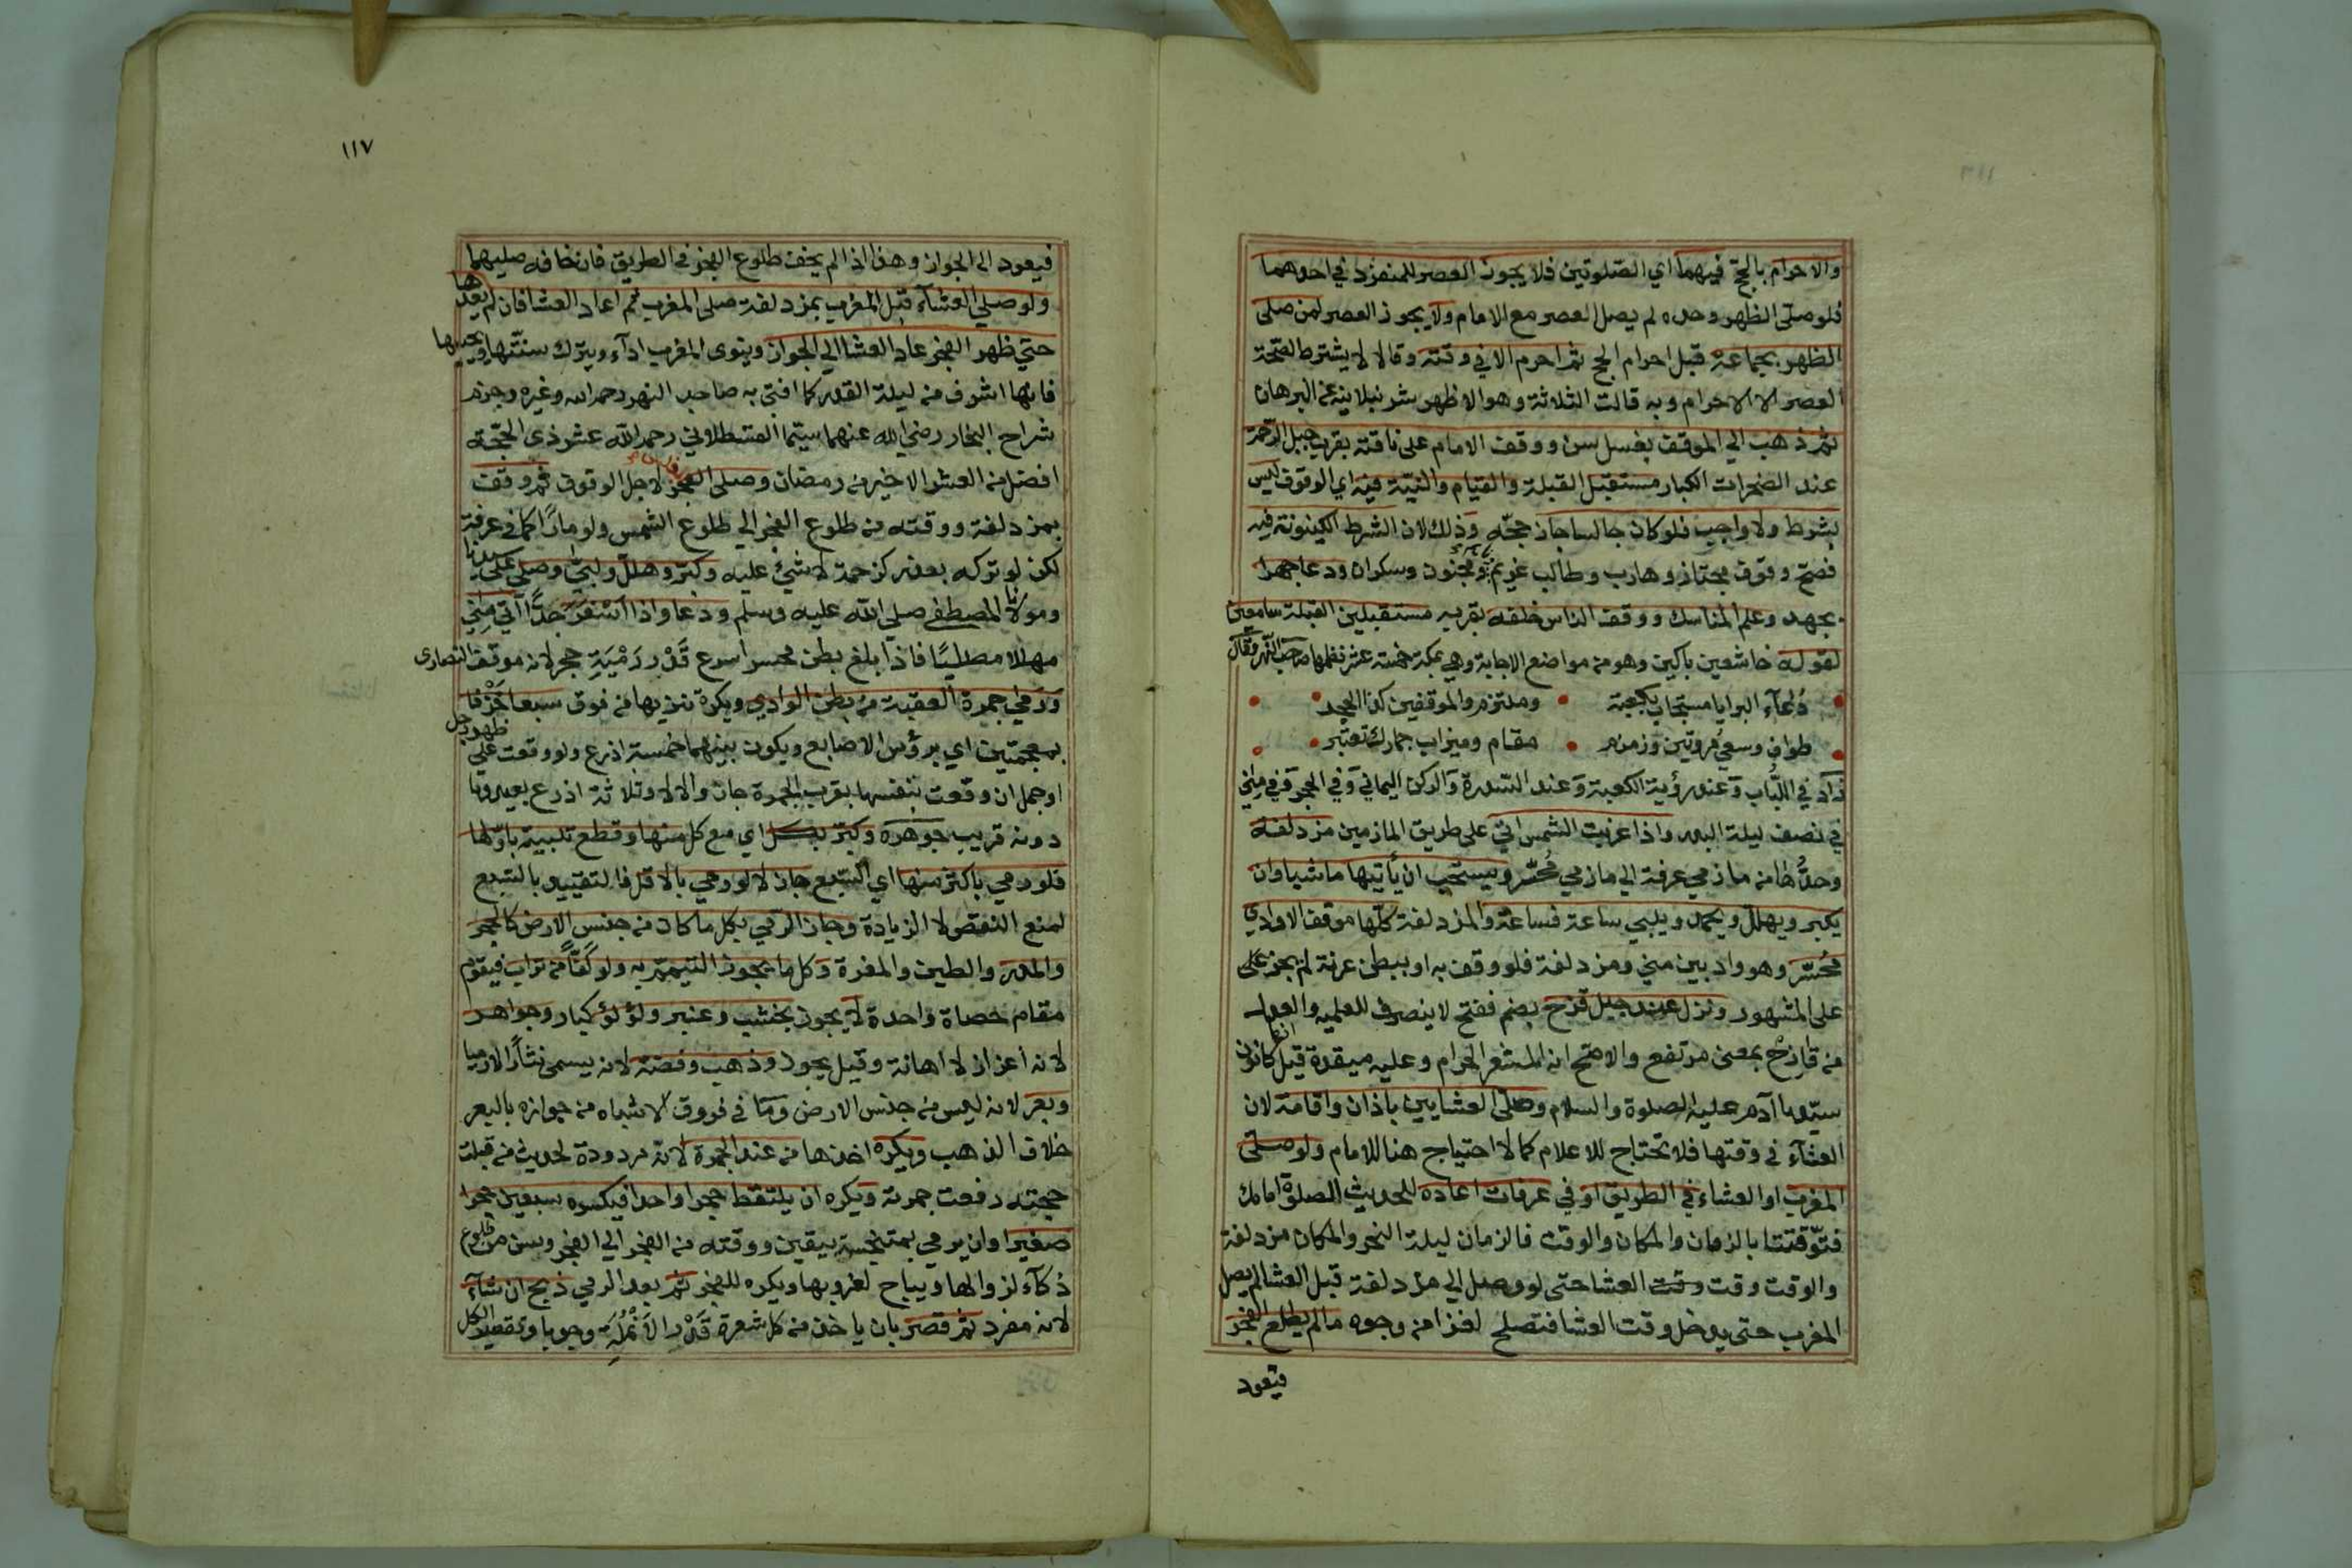 والاحرام بالحج فيهما اي الصلوتين فلا يجوز العصر للمنفرد في احدهما
فلو صلى الظهر وحده لم يصل العصر مع الامام ولا يجوز العصر لمن صلى
الظهر بجماعة قبل احرام الحج ثم احرم الا في وقته وقالا لا يشترط لصحة
العصر الا الاحرام وبه قالت الثلاثة وهو الاظهر شرنبلالية عن البرهان
ثم ذهب الي الموقف بغسل سن ووقف الامام على ناقته بقرب جبل الرحمة
عند الصخرات الكبار مستقبل القبلة والقيام والنية فيه اي الوقوف ليس
بشرط ولا واجب فلو كان جالسا جاز حجه وذلك لان الشرط الكينونة فيه
فصح وقوف مجتاز وهارب وطالب غريم ومجنون وسكران ودعا جهرا
بجهد وعلم المناسك ووقف الناس خلفه بقربه مستقبلين القبلة سامعين
لقوله خاشعين باكين وهو من مواضع الاجابة وهي بمكة خمسة عشر نظمها صاحب النهر فقال
دُعآء البرايا مستجاب بكعبة وملتزم والموقفين كذا الحجر
طواف وسعي مروتين وزمزم مقام وميزاب جمارك تعتبر
زاد في اللباب وعند رؤية الكعبة وعند السدرة والركن اليماني وفي الحجر وفي مِني
في نصف ليلة البدر واذا غربت الشمس اتي على طريق المازمين مزدلفة
وحدُّها من مازمي عرفة الي مازمي مُحسّر ويستحب ان يأتيها ماشيا وان
يكبر ويهلل ويحمد ويلبي ساعة فساعة والمزدلفة كلها موقف الا وادي
مُحسّر وهو واد بين مني ومزدلفة فلو وقف به او ببطن عرنة لم يجز على
على المشهور ونزل عند جبل قزح بضم ففتح لا ينصرف للعلمية والعدل
من قازح بمعنى مرتفع والاصح انه المشعر الحرام وعليه ميقدة قيل كانون
سيدنا آدم عليه الصلوة والسلام وصلى العشايين باذان واقامة لان
العشآء في وقتها فلا تحتاج للاعلام كما لا احتياج هنا للامام ولو صلى
المغرب او العشاء في الطريق او في عرفات اعاده للحديث الصلوة امامك
فتوقتتا بالزمان والمكان والوقت فالزمان ليلة النحر والمكان مزدلفة
والوقت وقت وقت العشا حتى لو وصل الي مزدلفة قبل العشا لم يصل
المغرب حتى يدخل وقت العشا فتصلح لغزا من وجوه ما لم يطلع الفجر
فيعود
١١٧
فيعود الى الجواز وهذا اذا لم يخف طلوع الفجر في الطريق فان خافه صليهما
ولو صلي العشآء قبل المغرب بمزدلفة صلى المغرب ثم اعاد العشا فان لم يعدها
حتي ظهر الفجر عاد العشا الي الجواز وينوى المغرب ادآء ويترك سنتها ويحييها
فانها اشرف من ليلة القدر كما افتى به صاحب النهر رحمه الله وغيره وجزم
شراح البخار رضي الله عنهما سيّما القسطلاني رحمه الله عشر ذي الحجة
افضل من العشر الاخير من رمضان وصلى الفجر لاجل الوقوف ثم وقف
بمزدلفة ووقته من طلوع الفجر الي طلوع الشمس ولو مارًا كما في عرفة
لكن لو تركه بعذر كزحمة لا شئ عليه وكبر وهلل ولبي وصلي على سيدنا
ومولانا المصطفى صلى الله عليه وسلم ودعا واذا اَسْفَرَ جدًّا اتي مِني
مهللا مصليًا فاذا بلغ بطن محسر اسرع قَدْر رَمْيَةِ حجر لانه موقف النصارى
وَرَمي جمرة العقبة من بطن الوادي ويكره تنزيها من فوق سبعا خَذْفا
بمعجمتين اي برؤس الاصابع ويكون بينهما خمسة اذرع ولو وقعت علي ظهر رجل
او جمل ان وقعت بنفسها بقرب الجمرة جاز والا لا وثلاثة اذرع بعيد وما
دونه قريب جوهرة وكبر بكل اي مع كل منها وقطع تلبيته باولها
فلو رمي باكثر منها اي السبع جاز لا لو رمي بالاقل فالتقييد بالسبع
لمنع النقص لا الزيادة وجاز الرمي بكل ما كان من جنس الارض كالحجر
والمدر والطين والمغرة وكل ما يجوز التيمم به ولو كَفًّا من تراب فيقوم
مقام حصاة واحدة لا يجوز بخشب وعنبر ولؤلؤ كبار وجواهر
لانه اعزاز لا اهانة وقيل يجوز وذهب وفضة لانه يسمى نثارًا لا رميا
وبعر لانه ليس من جنس الارض وما في فروق الاشباه من جوازه بالبعر
خلاف الذهب ويكره اخذها من عند الجمرة لانه مردودة لحديث من قبلت
حجته رفعت جمرته ويكره ان يلتقط حجرا واحدا فيكسره سبعين حجرا
صغيرا وان يرمي بمتنجسة بيقين ووقته من الفجر الي الفجر وسن من طلوع
ذكآء لزوالها ويباح لغروبها ويكره للفجر ثم بعد الرمي ذبح ان شآء
لانه مفرد ثم قصر بان ياخذ من كل شعرة قَدْر الاَنْمُلَةِ وجوبا وتقصير الكل